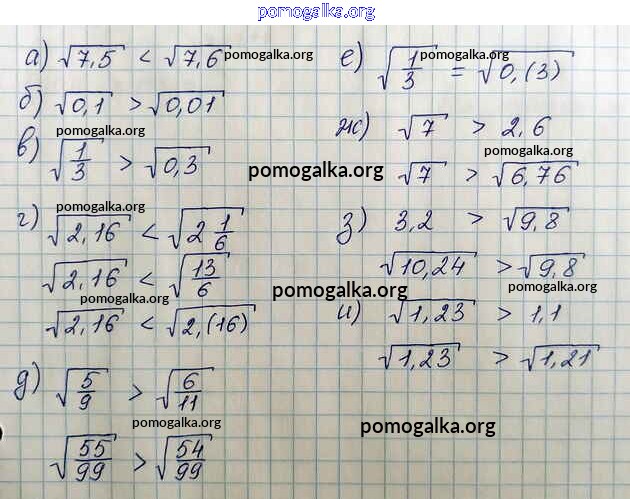 pomogalka.org
а) √7,5 < √7,6 pomogalka.org
б) √0,1 > √0,01
pomogalka.org
в) √(1/3) > √0,3
pomogalka.org
pomogalka.org
г) √2,16 < √(2 1/6)
√2,16 < √(13/6)
pomogalka.org
√2,16 < √2,(16)
д) √(5/9) > √(6/11)
pomogalka.org
√(55/99) > √(54/99)
е) √(1/3) = √0,(3)
pomogalka.org
ж) √7 > 2,6
pomogalka.org
√7 > √6,76
з) 3,2 > √9,8
pomogalka.org
√10,24 > √9,8
pomogalka.org
pomogalka.org
и) √1,23 > 1,1
√1,23 > √1,21
pomogalka.org